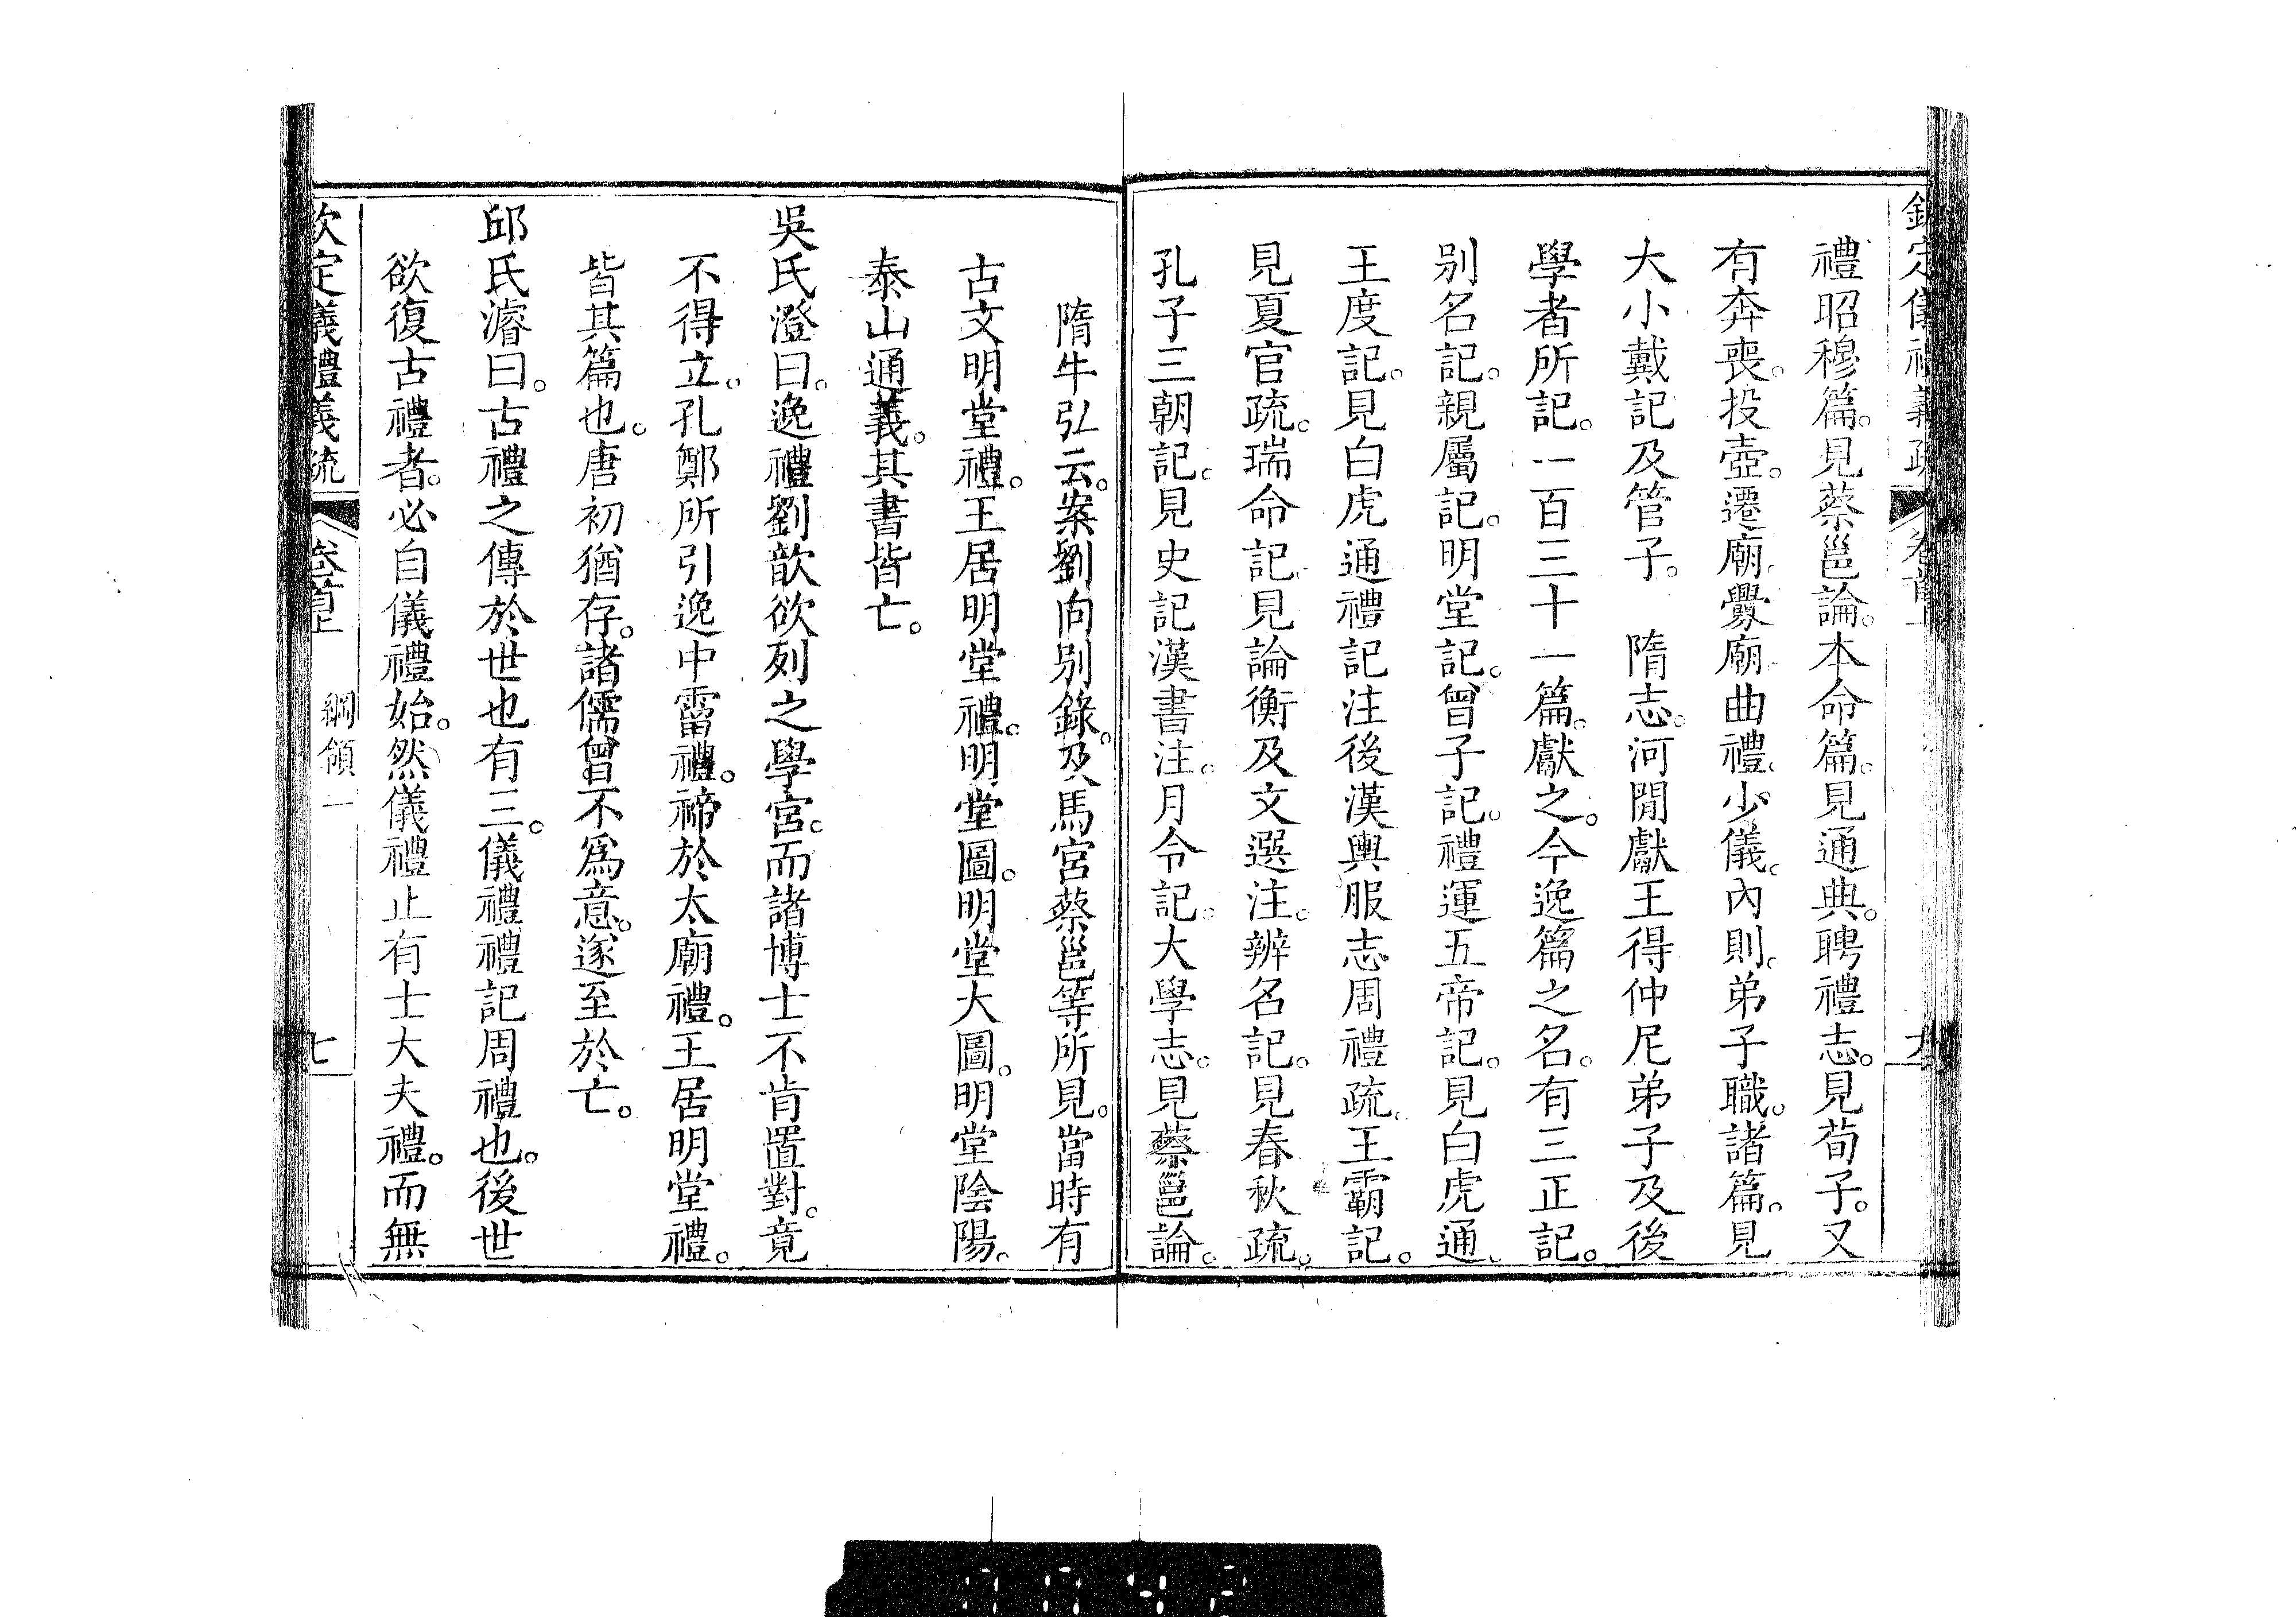 禮昭穆篇。見蔡邕論。本命篇。見通典。聘禮志。見荀子。又
有奔喪。投壺。遷廟。釁廟。曲禮。少儀。內則。弟子職。諸篇。見
大小戴記及管子。　隋志。河間獻王得仲尼弟子及後
學者所記。一百三十一篇。獻之。今逸篇之名。有三正記。
別名記。親屬記。明堂記。曾子記。禮運五帝記。見白虎通。
王度記。見白虎通禮記注後漢輿服志周禮疏。王霸記。
見夏官疏。瑞命記。見論衡及文選注。辨名記。見春秋疏。
孔子三朝記。見史記漢書注。月令記。大學志。見蔡邕論。
隋牛弘云。案劉向別錄。及馬宮蔡邕等所見。當時有
古文明堂禮。王居明堂禮。明堂圖。明堂大圖。明堂陰陽。
泰山通義。其書皆亡。
吳氏澄曰。逸禮劉歆欲列之學宮。而諸博士不肯置對。竟
不得立。孔鄭所引逸中霤禮。禘於太廟禮。王居明堂禮。
皆其篇也。唐初猶存。諸儒曾不爲意。遂至於亡。
邱氏濬曰。古禮之傳於世也有三。儀禮禮記周禮也。後世
欲復古禮者。必自儀禮始。然儀禮止有士大夫禮。而無
欽定儀禮義疏　卷首上　綱領一　七